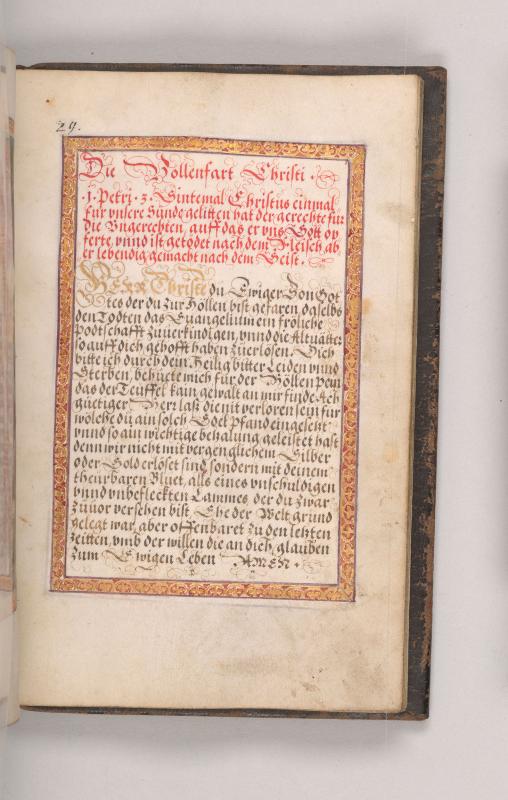 29.
Die Höllenfart Christi.
.1. Petrj. 3. Sintemal Christus einmal
fur unsere Sünde gelitten hat der gerechte für
die Ungerechten, auff das er uns Gott op
ferte, unnd ist getödet nach dem Fleisch, ab
er lebendig gemacht nach dem Geist.
HERR Christe du Ewiger Son Got
tes der du zur Höllen bist gefaren daselbs
den Todten das Euangelium ein fröliche
Podtschafft zuuerkündigen, unnd die Altuätter
so auff dich gehofft haben zuerlösen. Dich
bitte ich durch dein Heilig bitter Leiden unnd
Sterben, behuete mich für der Höllen Pein
das der Teuffel kain gewalt an mir finde. Ach
güetiger Herr laß die nit verloren sein für
wölche du ain solch Edel Pfand eingesetzt
unnd so ain wichtige bezalung geleistet hast
denn wir nicht mit vergenglichem Silber
oder Gold erlöset sind, sondern mit deinem
theurbaren Bluet, alls eines unschuldigen
unnd unbefleckten Lammes, der du zwar
zuuor versehen bist Ehe der Welt grund
gelegt war, aber offenbaret zu den letzten
zeitten, umb der willen die an dich, glauben
zum Ewigen Leben AMEN.